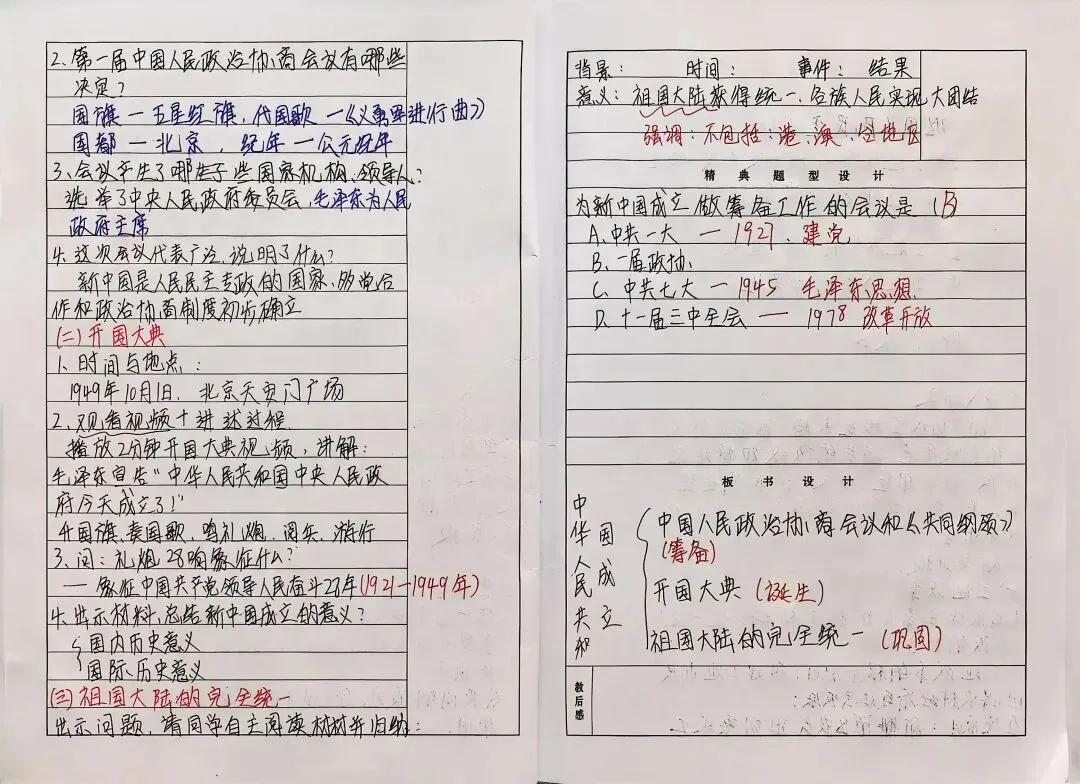 2.第一届中国人民政治协商会议有哪些
决定?
国旗—五星红旗,代国歌—《义勇军进行曲》
国都—北京,纪年—公元纪年
3、会议产生了哪些国家机构、领导人?
选举了中央人民政府委员会,毛泽东为人民
政府主席
4.这次会议代表广泛,说明了什么?
新中国是人民民主专政的国家,多党合
作和政治协商制度初步确立
(二)开国大典
1、时间与地点:
1949年10月1日、北京天安门广场
2、观看视频+讲述过程
播放2分钟开国大典视频,讲解:
毛泽东宣告"中华人民共和国中央人民政
府今天成立了!"
升国旗、奏国歌、鸣礼炮、阅兵、游行
3、问:礼炮28响象征什么?
—象征中国共产党领导人民奋斗28年(1921—1949年)
4.出示材料,总结新中国成立的意义?
{国内历史意义
国际历史意义
(三)祖国大陆的完全统一
出示问题,请同学自主阅读材料并归纳:
背景: 时间: 事件: 结果
意义:祖国大陆获得统一、各族人民实现大团结
强调:不包括:港、澳、台地区
精典题型设计
为新中国成立做筹备工作的会议是(B)
A、中共一大—1921、建党
B、一届政协
C、中共七大—1945 毛泽东思想
D、十一届三中全会—1978 改革开放
板书设计
中华人民共和
国成立
中国人民政治协商会议和《共同纲领》
(筹备)
开国大典(诞生)
祖国大陆的完全统一(巩固)
教后感